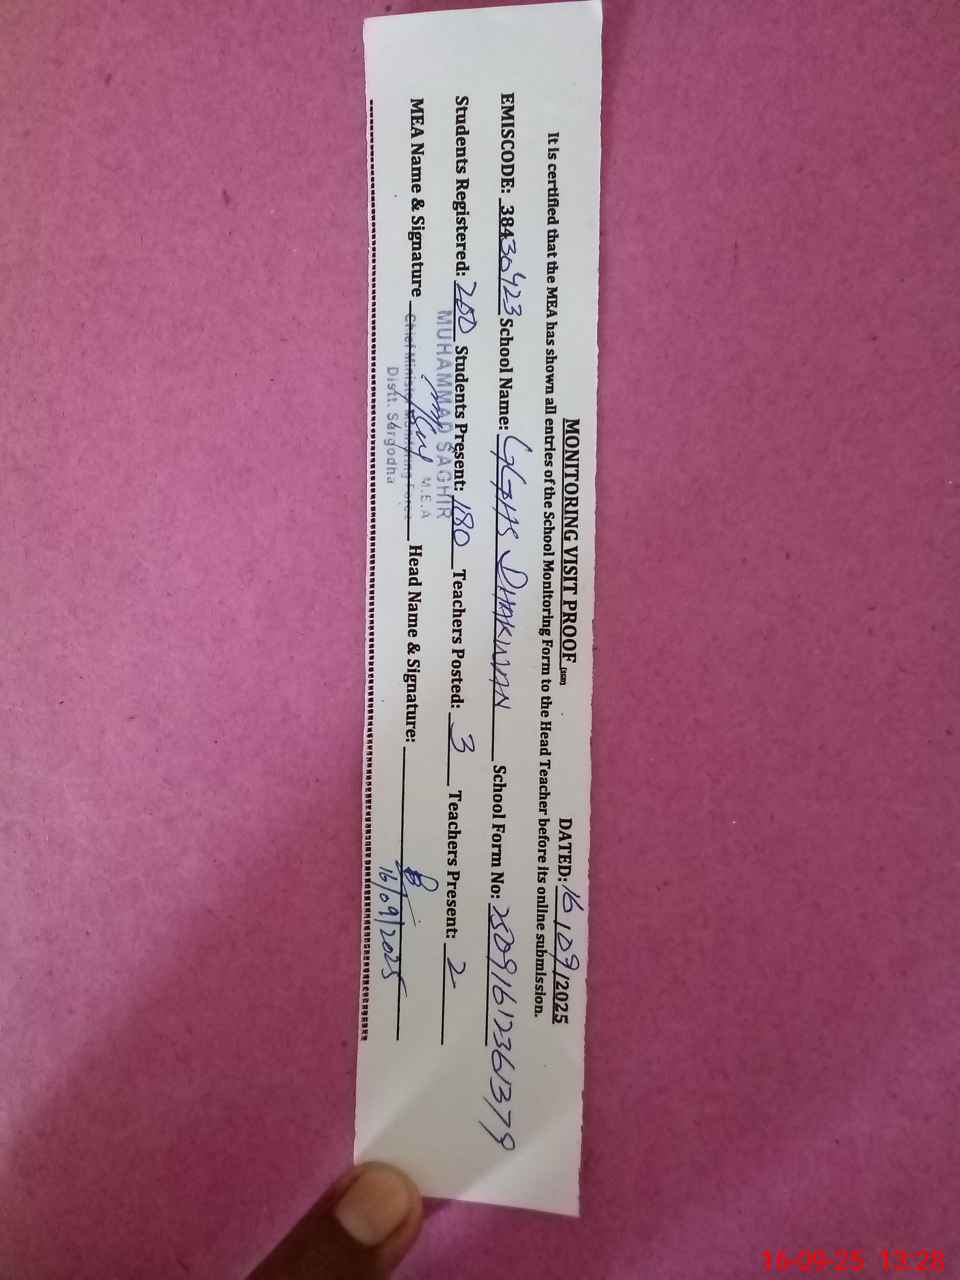 MONITORING VISIT PROOF (SED) DATED: 16/09/2025
It is certified that the MEA has shown all entries of the School Monitoring Form to the Head Teacher before its online submission.
EMISCODE: 38430423 School Name: GGHS DHAKWAN School Form No: 25091612361379
Students Registered: 200 Students Present: 180 Teachers Posted: 3 Teachers Present: 2
MUHAMMAD SAGHIR
M.E.A
MEA Name & Signature Head Name & Signature:
Chief Minister Monitoring Force
Distt. Sargodha
16/09/2025
16-09-25 13:28